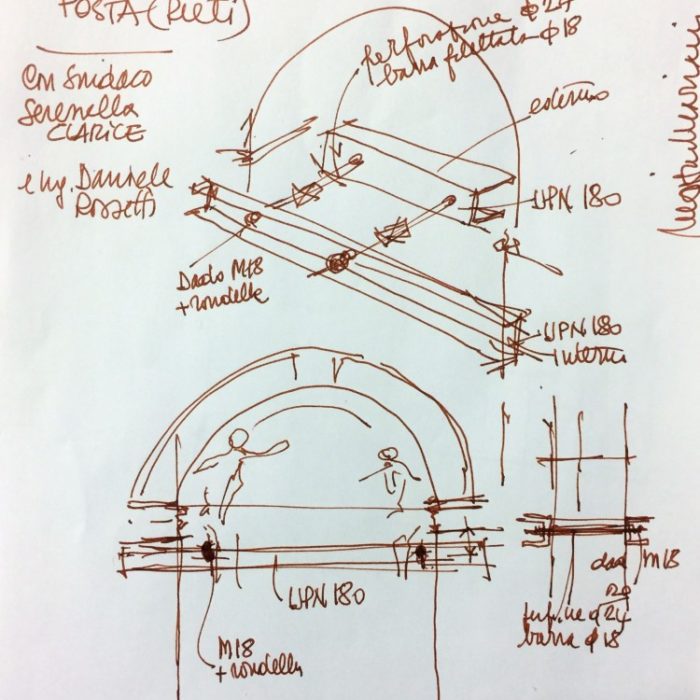 POSTA (Rieti)
Con Sindaco
Serenella
CLARICE
e Ing. Daniele
Rossetti
perforazione ϕ 24
barra filettata ϕ 18
esterno
UPN 180
Dado M18
+ rondella
UPN 180
interni
UPN 180
M18
+ rondella
M18
ϕ 24
barra ϕ 18